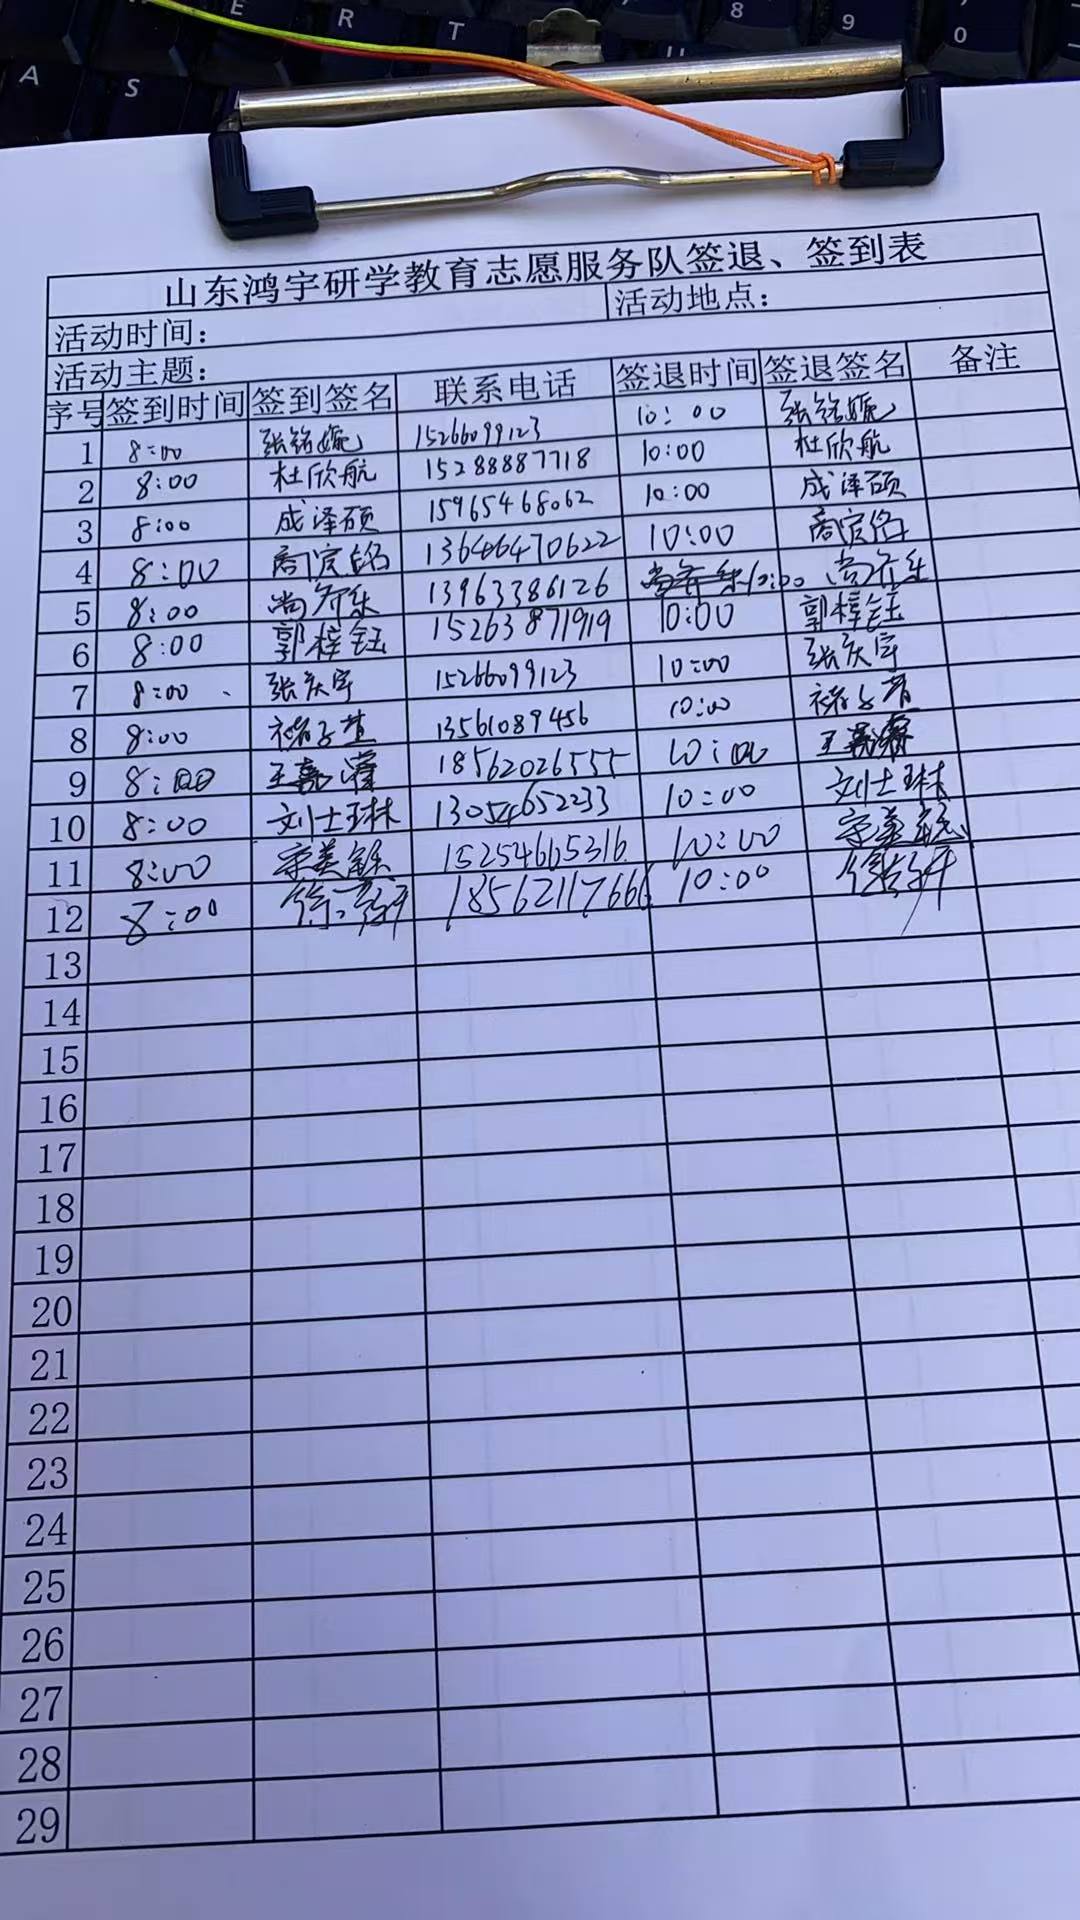 E R T U 8 9 0
A S
山东鸿宇研学教育志愿服务队签退、签到表
活动时间: 活动地点:
活动主题:
序号 签到时间 签到签名 联系电话 签退时间 签退签名 备注
1 8:00 张铭婉 15266099123 10:00 张铭婉
2 8:00 杜欣航 15288887718 10:00 杜欣航
3 8:00 成泽硕 15965468062 10:00 成泽硕
4 8:00 商宜铭 13646470622 10:00 商宜铭
5 8:00 尚乔乐 13963386126 10:00 尚乔乐
6 8:00 郭梓钰 15263871919 10:00 郭梓钰
7 8:00 张庆宇 15266099123 10:00 张庆宇
8 8:00 褚子萱 13561089456 10:00 褚子萱
9 8:00 王嘉 18562026555 10:00 王嘉
10 8:00 刘士琳 13054652233 10:00 刘士琳
11 8:00 宗美 15254665316 10:00 宗美
12 8:00 徐 18562117666 10:00 徐
13
14
15
16
17
18
19
20
21
22
23
24
25
26
27
28
29